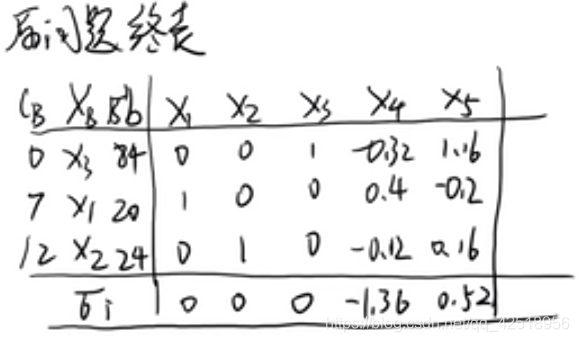 原问题终表
C_B X_B B⁻¹b X₁ X₂ X₃ X₄ X₅
0 X₃ 84 0 0 1 -0.32 1.16
7 X₁ 20 1 0 0 0.4 -0.2
12 X₂ 24 0 1 0 -0.12 0.16
σj 0 0 0 -1.36 0.52
https://blog.csdn.net/qq_42518956